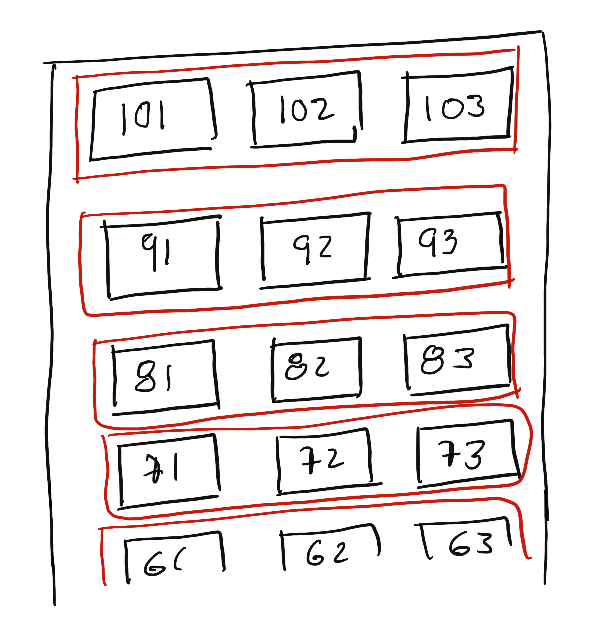 101 102 103
91 92 93
81 82 83
71 72 73
61 62 63